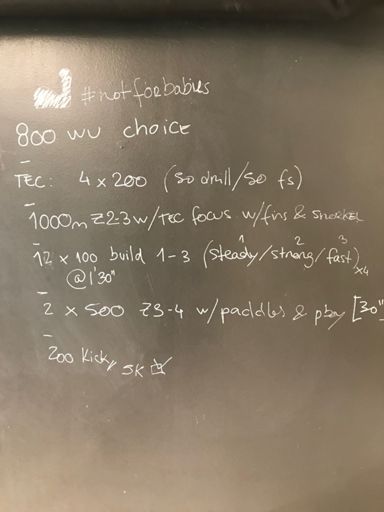 #notforbabies
800 wu choice
-
TEC: 4 x 200 (50 drill/50 fs)
-
1000m z2-3 w/TEC focus w/fins & snorkel
-
12 x 100 build 1-3 (steady/strong/fast) x4
1 2 3
@1'30"
-
2 x 500 z3-4 w/paddles & pbuoy [30"]
-
200 Kick
5K